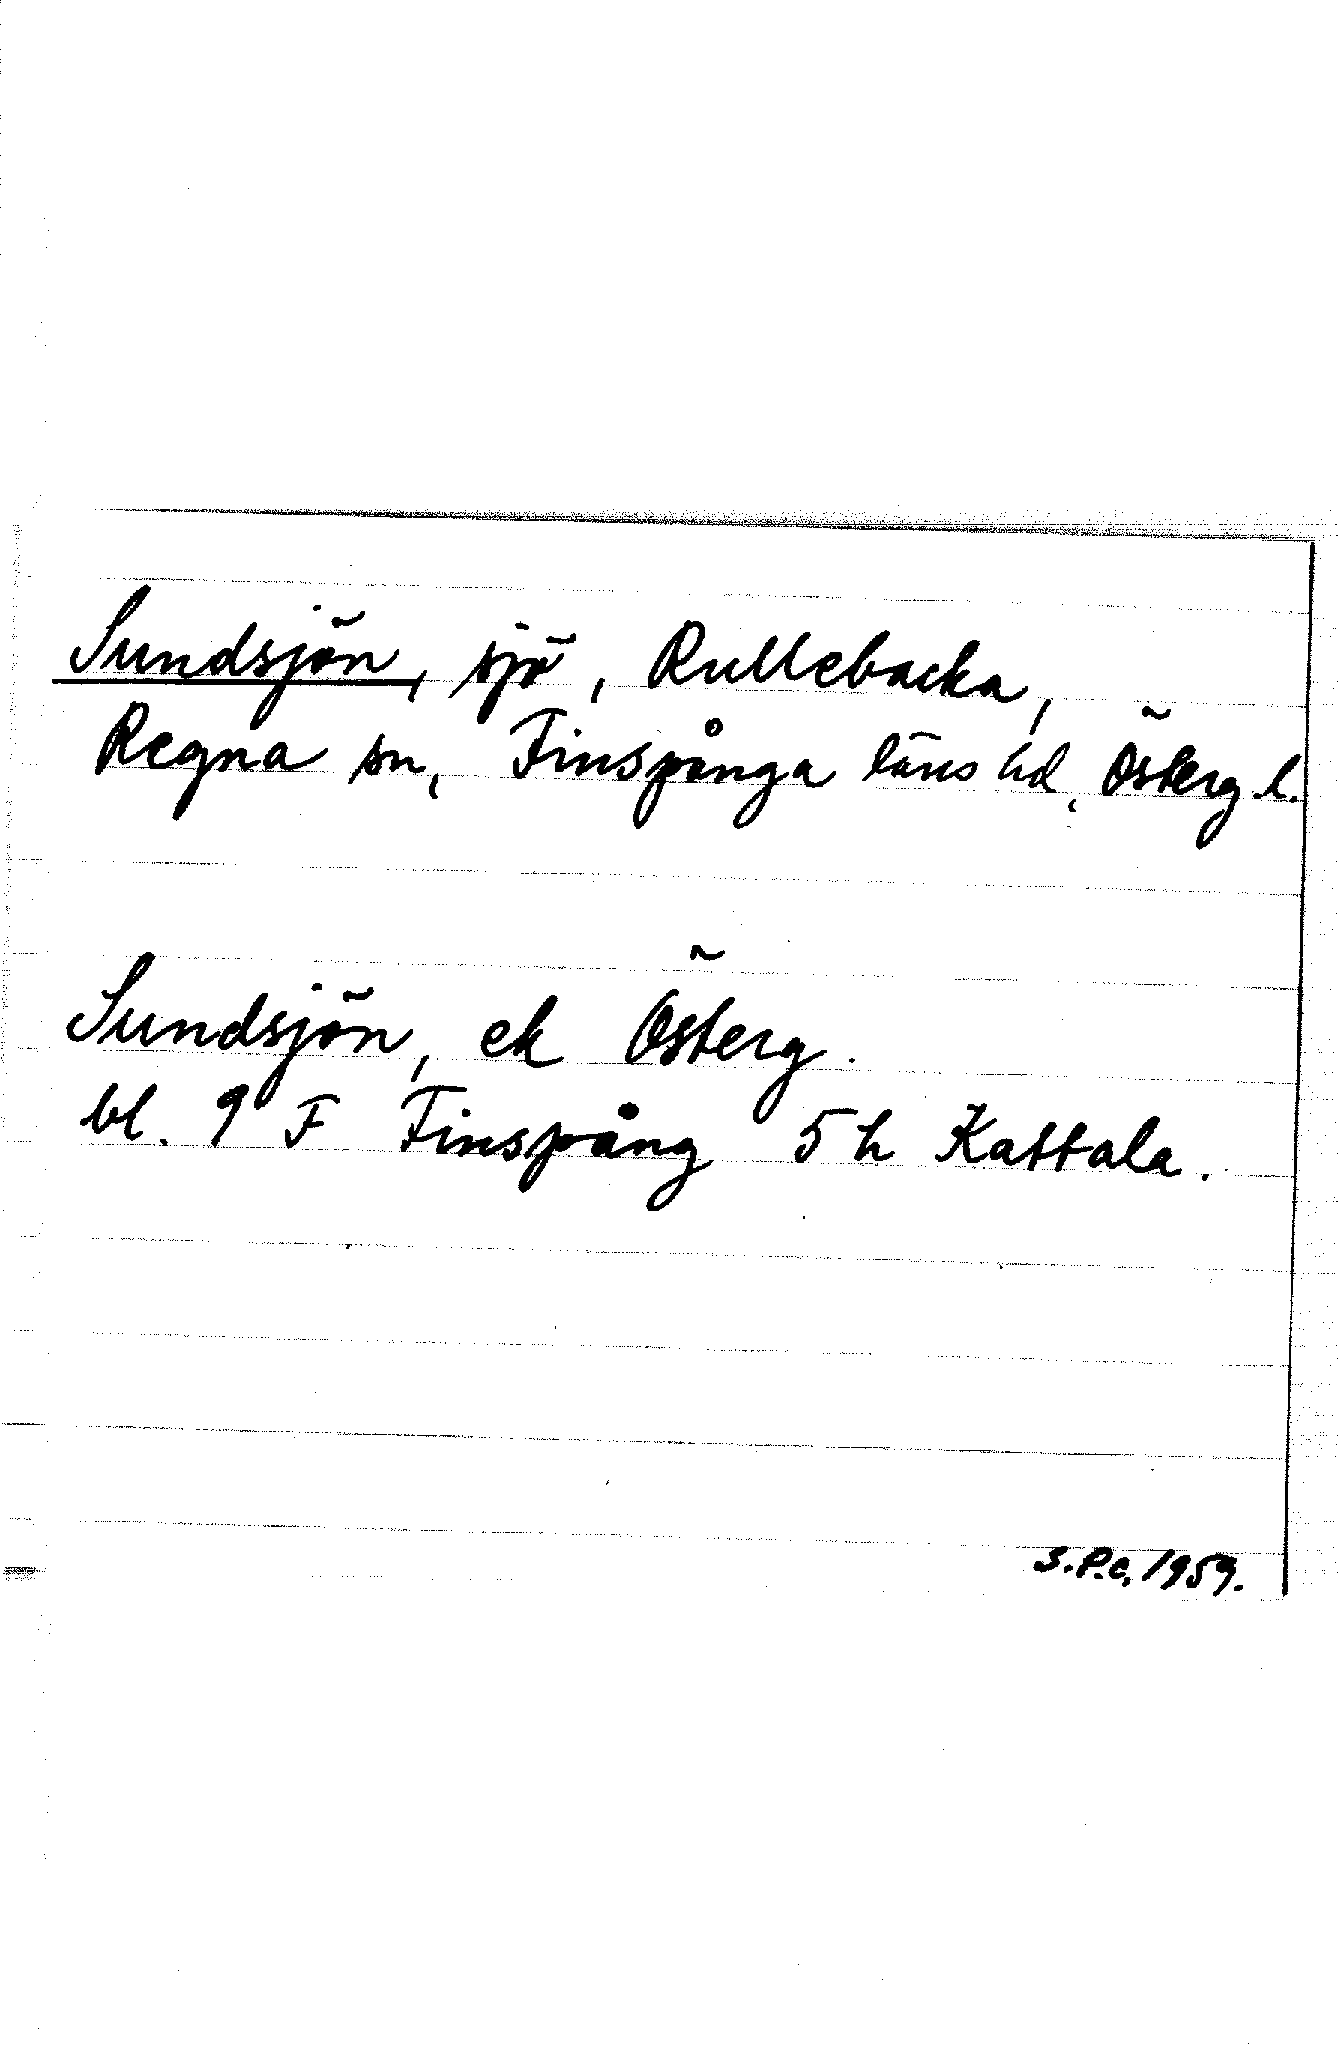 Sundsjön, sjö, Rullebacka,
Regna sn, Finspånga läns hd, Österg. l.
Sundsjön, ek Österg.
bl. 9 F Finspång 5 h Kattala.
S.P.C. 1959.